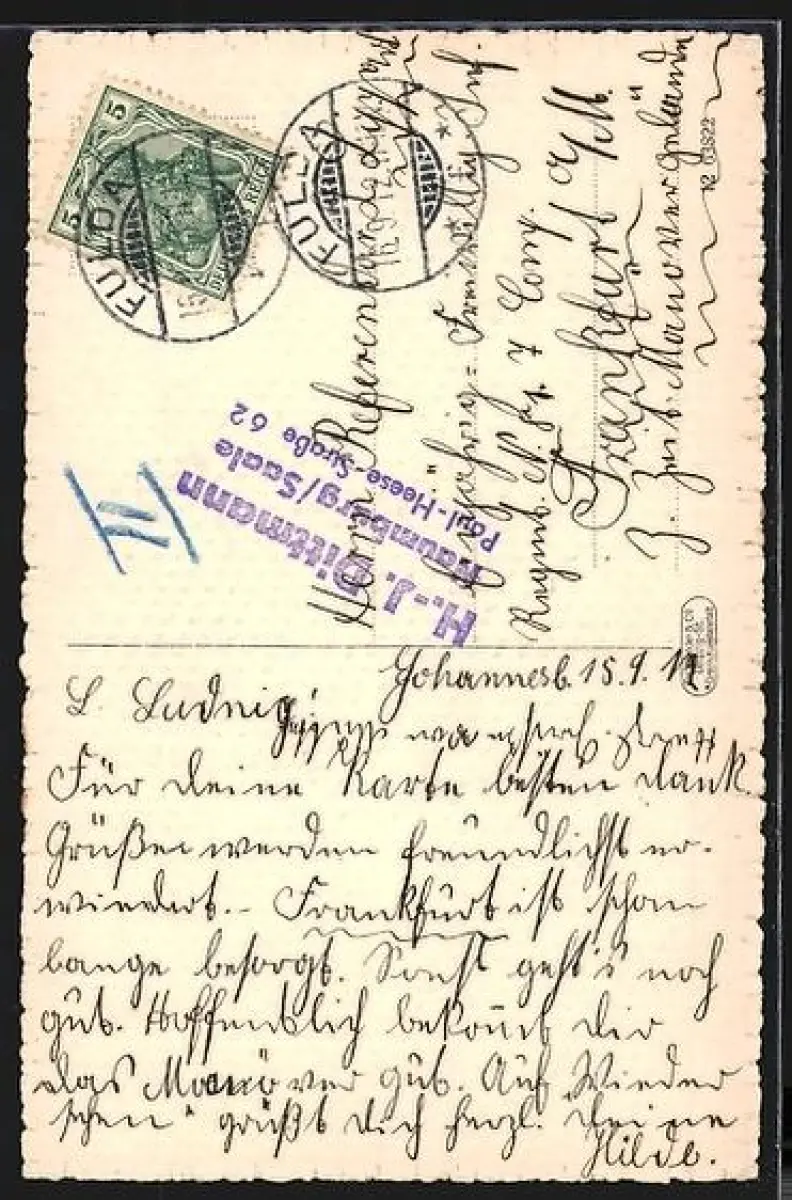 5
5
DEUTSCHES REICH
FULDA
FULDA
16.9.12
Herrn Referendar
Einjährig-Freiwillig Inf.
Regmt. N. 81 7 Comp.
Frankfurt a/M.
Z. Zeit Manövergelände
N 03822
H.-J. Dittmann
Naumburg/Saale
Paul-Heese-Straße 62
II
Johannesb. 15.9.12
L. Ludwig!
Für deine Karte besten Dank.
Grüße werden freundlichst er-
widert. - Frankfurt ist schon
lange besorgt. Sonst geht's noch
gut. Hoffentlich bekomt dir
das Manöver gut. Auf Wieder
sehen" grüßt dich herzl. deine
Hilde.